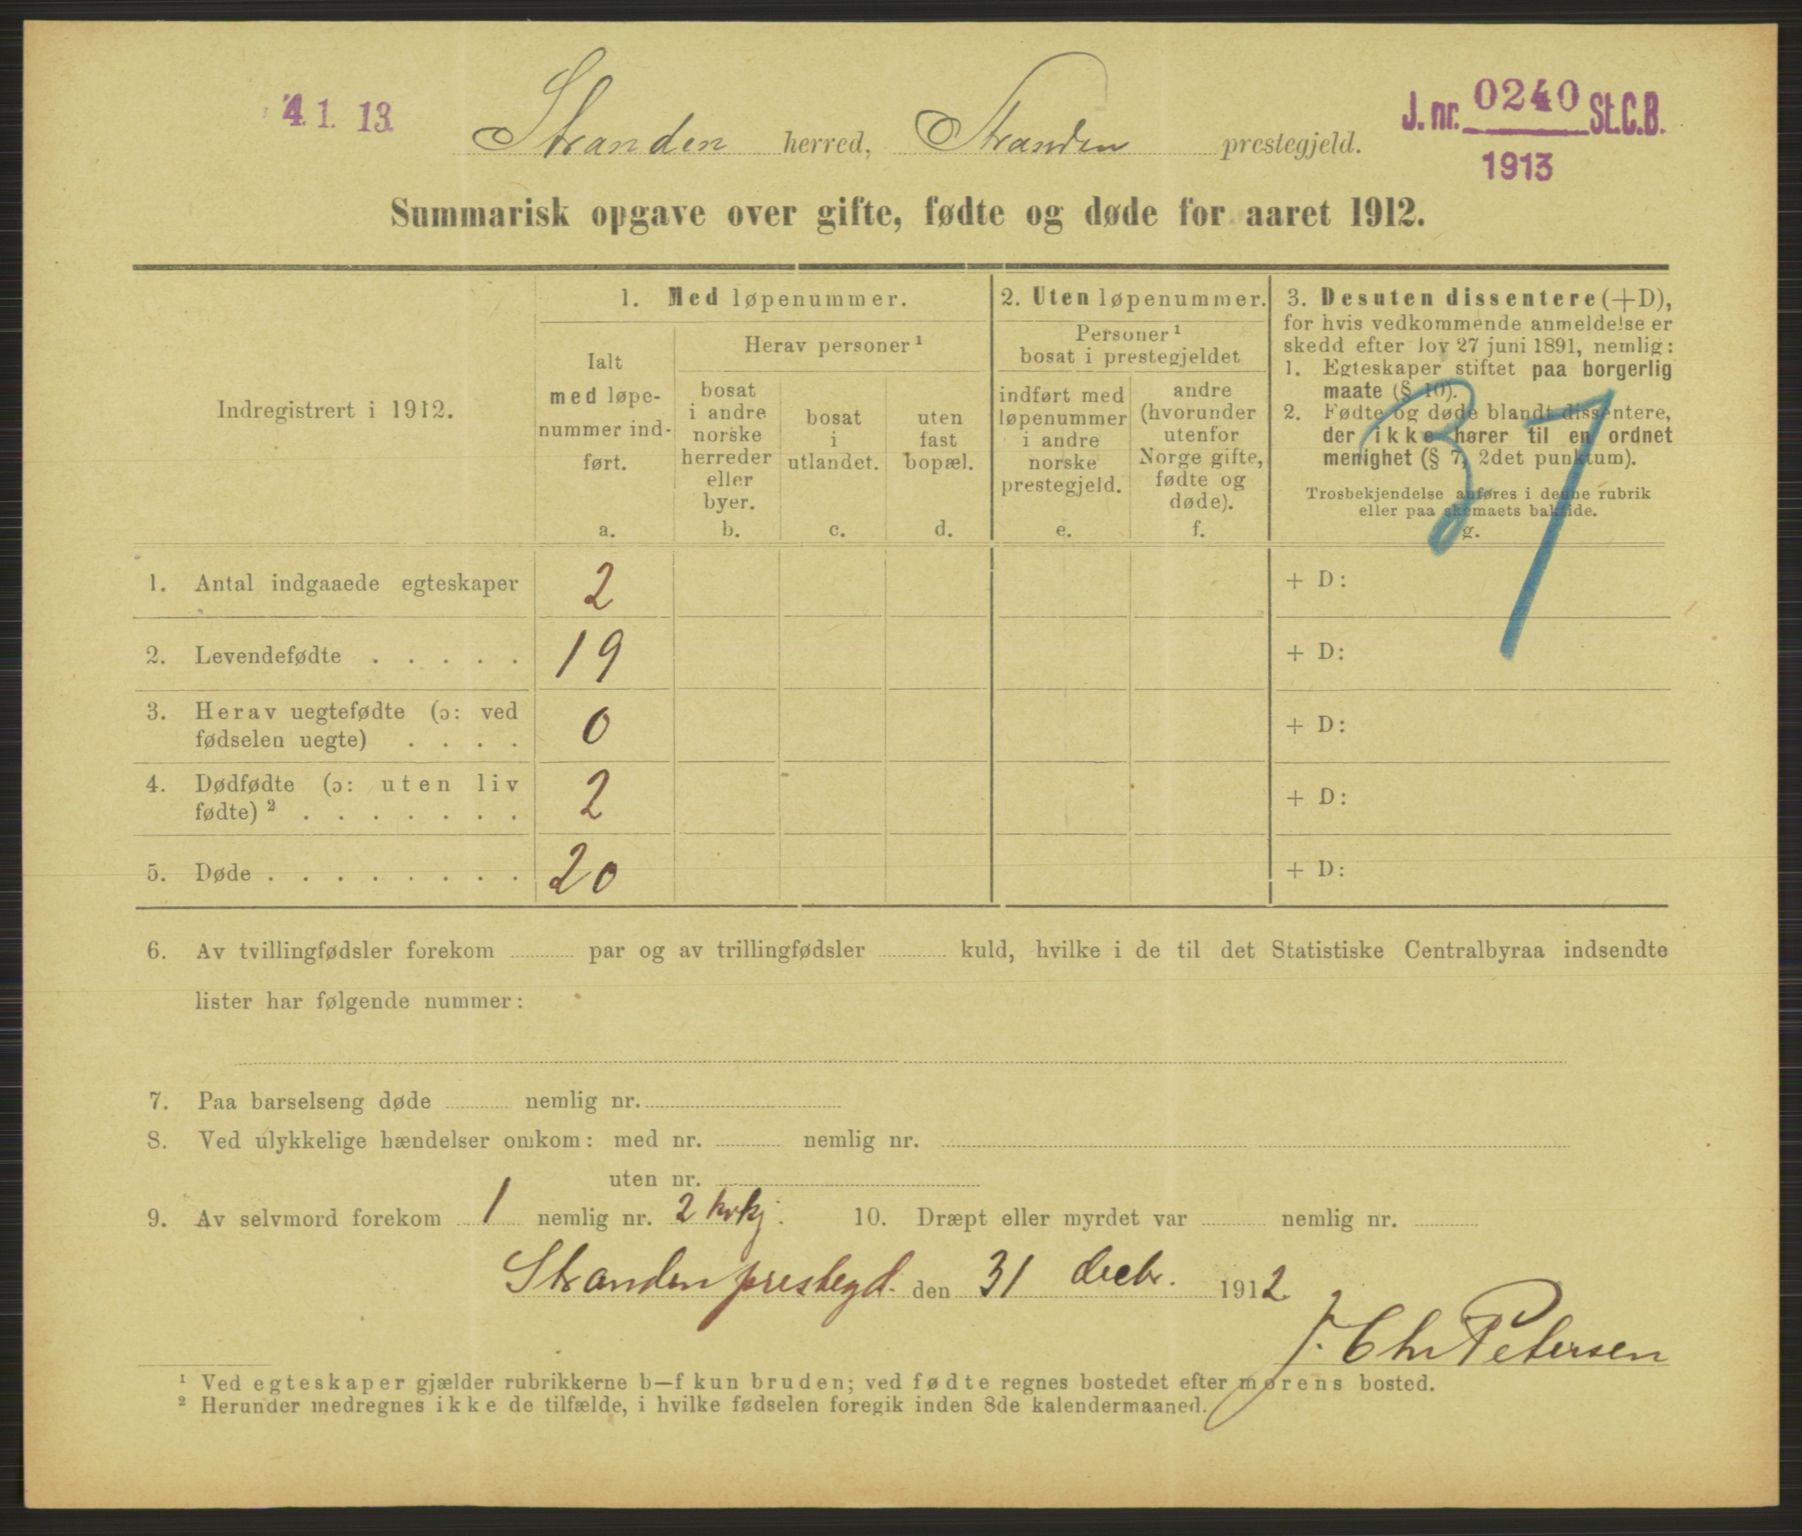 4. 1. 13
J. nr. 0240 St.C.B.
1913
Stranden herred, Stranden prestegjeld.
Summarisk opgave over gifte, fødte og døde for aaret 1912.
Indregistrert i 1912.
1. Med løpenummer.
Ialt
med løpe-
nummer ind-
ført.
a.
Herav personer ¹
bosat
i andre
norske
herreder
eller
byer.
b.
bosat
i
utlandet.
c.
uten
fast
bopæl.
d.
2. Uten løpenummer.
Personer ¹
bosat i prestegjeldet
indført med
løpenummer
i andre
norske
prestegjeld.
e.
andre
(hvorunder
utenfor
Norge gifte,
fødte og
døde).
f.
3. Desuten dissentere (+D),
for hvis vedkommende anmeldelse er
skedd efter lov 27 juni 1891, nemlig:
1. Egteskaper stiftet paa borgerlig
maate (§ 10).
2. Fødte og døde blandt dissentere,
der ikke hører til en ordnet
menighet (§ 7, 2det punktum).
Trosbekjendelse anføres i denne rubrik
eller paa skemaets bakside.
g.
37
1. Antal indgaaede egteskaper 2 + D:
2. Levendefødte . . . . . 19 + D:
3. Herav uegtefødte (ɔ: ved
fødselen uegte) . . . . 0 + D:
4. Dødfødte (ɔ: uten liv
fødte) ² . . . . . . . 2 + D:
5. Døde . . . . . . . . 20 + D:
6. Av tvillingfødsler forekom par og av trillingfødsler kuld, hvilke i de til det Statistiske Centralbyraa indsendte
lister har følgende nummer:
7. Paa barselseng døde nemlig nr.
8. Ved ulykkelige hændelser omkom: med nr. nemlig nr.
uten nr.
9. Av selvmord forekom 1 nemlig nr. 2 kvkj. 10. Dræpt eller myrdet var nemlig nr.
Stranden prestegd. den 31 decbr. 1912
J. Chr Petersen
¹ Ved egteskaper gjælder rubrikkerne b—f kun bruden; ved fødte regnes bostedet efter morens bosted.
² Herunder medregnes ikke de tilfælde, i hvilke fødselen foregik inden 8de kalendermaaned.